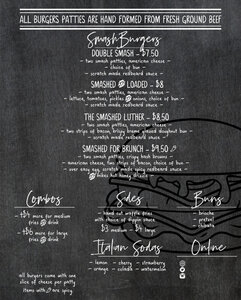 ALL BURGERS PATTIES ARE HAND FORMED FROM FRESH GROUND BEEF
SmashBurgers
DOUBLE SMASH - $7.50
- two smash patties, american cheese -
- choice of bun -
- scratch made redbeard sauce -
SMASHED & LOADED - $8
- two smash patties, american cheese -
- lettuce, tomatoes, pickles & onions, choice of bun -
- scratch made redbeard sauce -
THE SMASHED LUTHER - $8.50
- two smash patties, american cheese -
- two strips of bacon, krispy kreme glazed doughnut bun -
- scratch made redbeard sauce -
SMASHED FOR BRUNCH - $9.50
- two smash patties, crispy hash browns -
- american cheese, two strips of bacon, choice of bun -
- over easy egg, scratch made spicy redbeard sauce -
Combos
- +$4 for medium
fries & drink
- +$6 for large
fries & drink
all burgers come with one
slice of cheese per patty
items with are spicy
Sides
- hand cut waffle fries
with choice of dippin sauce
$3 medium - $4 large
Buns
- brioche
- pretzel
- ciabatta
Italian Sodas
- lemon - cherry - strawberry
- orange - culada - watermelon
Online